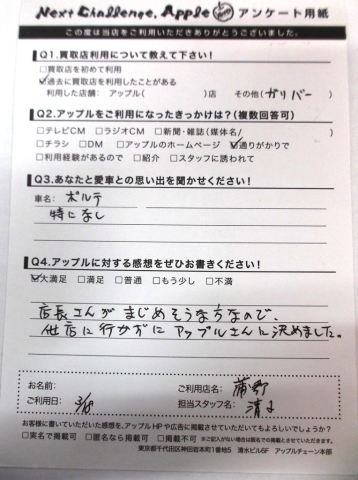 Next Challenge, Apple アンケート用紙
この度は当店をご利用いただきありがとうございました。
Q1.買取店利用について教えて下さい!
□買取店を初めて利用
☑過去に買取店を利用したことがある
利用した店舗: アップル( )店 その他(ガリバー )
Q2.アップルをご利用になったきっかけは?(複数回答可)
□テレビCM □ラジオCM □新聞・雑誌(媒体名/ )
□チラシ □DM □アップルのホームページ ☑通りがかりで
□利用経験があるので □紹介 □スタッフに誘われて
Q3.あなたと愛車との思い出を聞かせください!
車名: ポルテ
特になし
Q4.アップルに対する感想をぜひお書きください!
☑大満足 □満足 □普通 □もう少し □不満
店長さんがまじめそうな方なので、
他店に行かずにアップルさんに決めました。
お名前:
ご利用店名:
ご利用日: 3/18
担当スタッフ名:
お客様に書いていただいた感想を、アップルHPや広告に掲載させていただいてもよろしいでしょうか?
□実名で掲載可 □匿名なら掲載可 □掲載不可 ※ご記入がない場合は匿名での掲載とさせていただきます。
東京都千代田区神田岩本町1番地5 清水ビル6F アップルチェーン本部